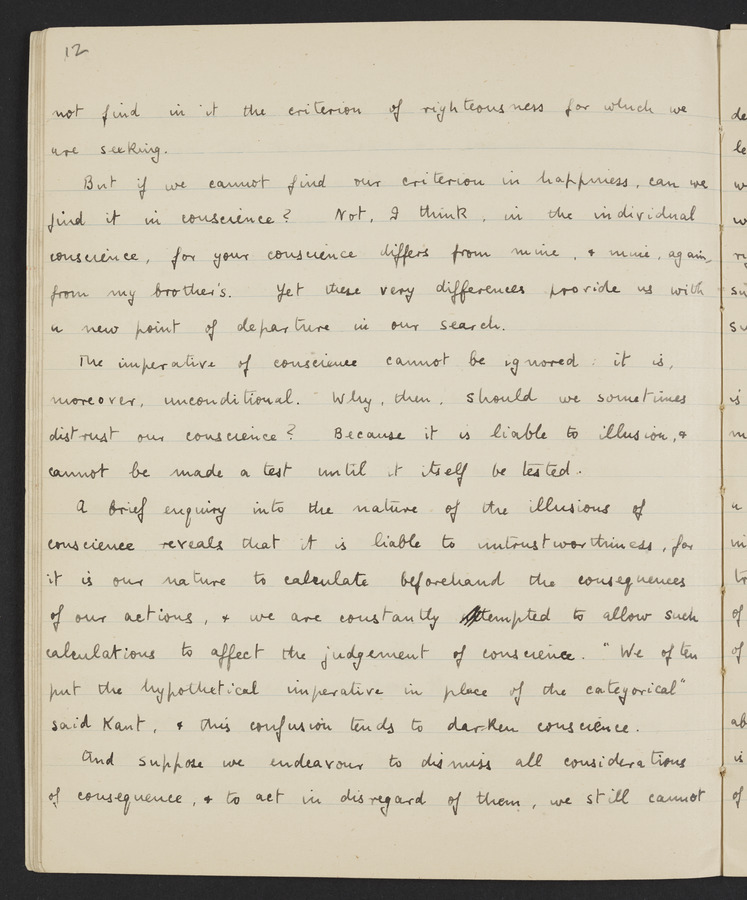 12
not find in it the criterion of righteousness for which we
are seeking.
But if we cannot find our criterion in happiness, can we
find it in conscience? Not, I think, in the individual
conscience, for your conscience differs from mine, & mine, again,
from my brother's. Yet these very differences provide us with
a new point of departure in our search.
The imperative of conscience cannot be ignored: it is,
moreover, unconditional. Why, then, should we sometimes
distrust our conscience? Because it is liable to illusion, &
cannot be made a test until it itself be tested.
A brief enquiry into the nature of the illusions of
conscience reveals that it is liable to untrustworthiness, for
it is our nature to calculate beforehand the consequences
of our actions, & we are constantly tempted to allow such
calculations to affect the judgement of conscience. "We often
put the hypothetical imperative in place of the categorical"
said Kant, & this confusion tends to darken conscience.
And suppose we endeavour to dismiss all considerations
of consequence, & to act in disregard of them, we still cannot